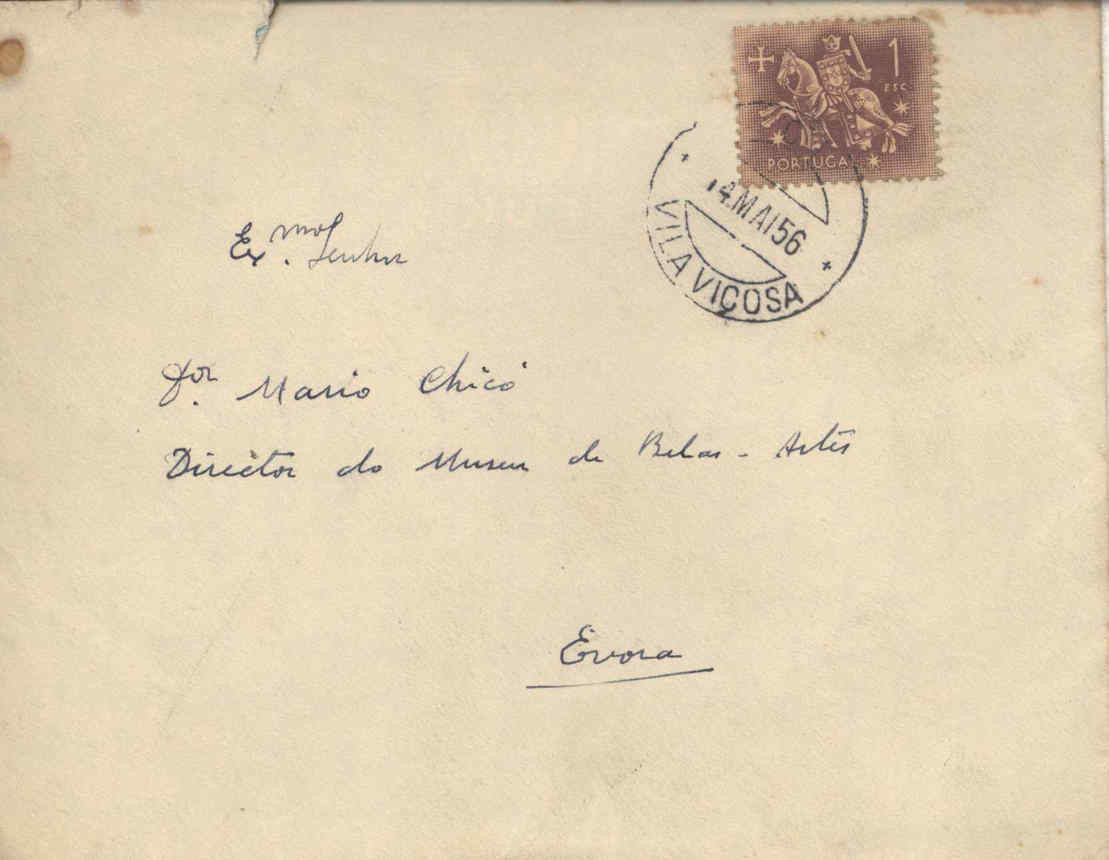 1
ESC.
PORTUGAL
14.MAI56
VILA VIÇOSA
Ex.mo Senhor
Dor. Mario Chicó
Director do Museu de Belas-Artes
Évora